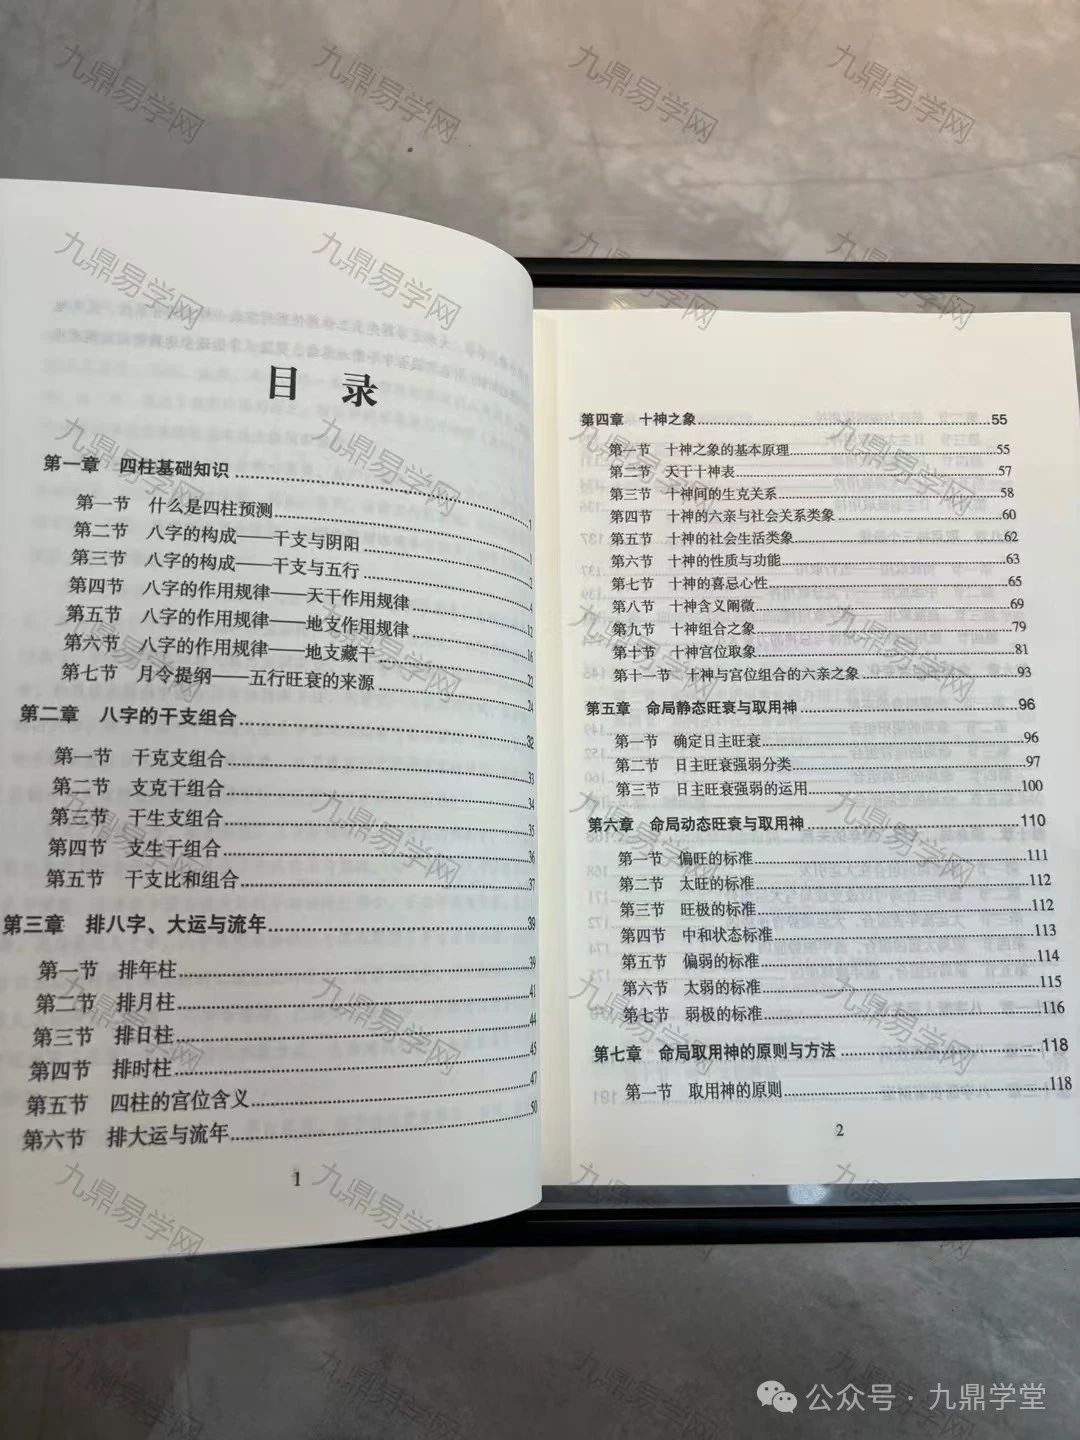 目 录
第一章 四柱基础知识
第一节 什么是四柱预测………1
第二节 八字的构成——干支与阴阳………1
第三节 八字的构成——干支与五行………2
第四节 八字的作用规律——天干作用规律………4
第五节 八字的作用规律——地支作用规律………12
第六节 八字的作用规律——地支藏干………16
第七节 月令提纲——五行旺衰的来源………22
24
第二章 八字的干支组合………32
第一节 干克支组合………33
第二节 支克干组合………34
第三节 干生支组合………35
第四节 支生干组合………36
第五节 干支比和组合………37
第三章 排八字、大运与流年………39
第一节 排年柱………39
第二节 排月柱………41
第三节 排日柱………44
第四节 排时柱………45
第五节 四柱的宫位含义………47
第六节 排大运与流年………50
1
第四章 十神之象………55
第一节 十神之象的基本原理………55
第二节 天干十神表………57
第三节 十神间的生克关系………58
第四节 十神的六亲与社会关系类象………60
第五节 十神的社会生活类象………62
第六节 十神的性质与功能………63
第七节 十神的喜忌心性………65
第八节 十神含义阐微………69
第九节 十神组合之象………79
第十节 十神宫位取象………81
第十一节 十神与宫位组合的六亲之象………93
第五章 命局静态旺衰与取用神………96
第一节 确定日主旺衰………96
第二节 日主旺衰强弱分类………97
第三节 日主旺衰强弱的运用………100
第六章 命局动态旺衰与取用神………110
第一节 偏旺的标准………111
第二节 太旺的标准………112
第三节 旺极的标准………112
第四节 中和状态标准………113
第五节 偏弱的标准………114
第六节 太弱的标准………115
第七节 弱极的标准………116
第七章 命局取用神的原则与方法………118
第一节 取用神的原则………118
2
九鼎易学网
公众号·九鼎学堂